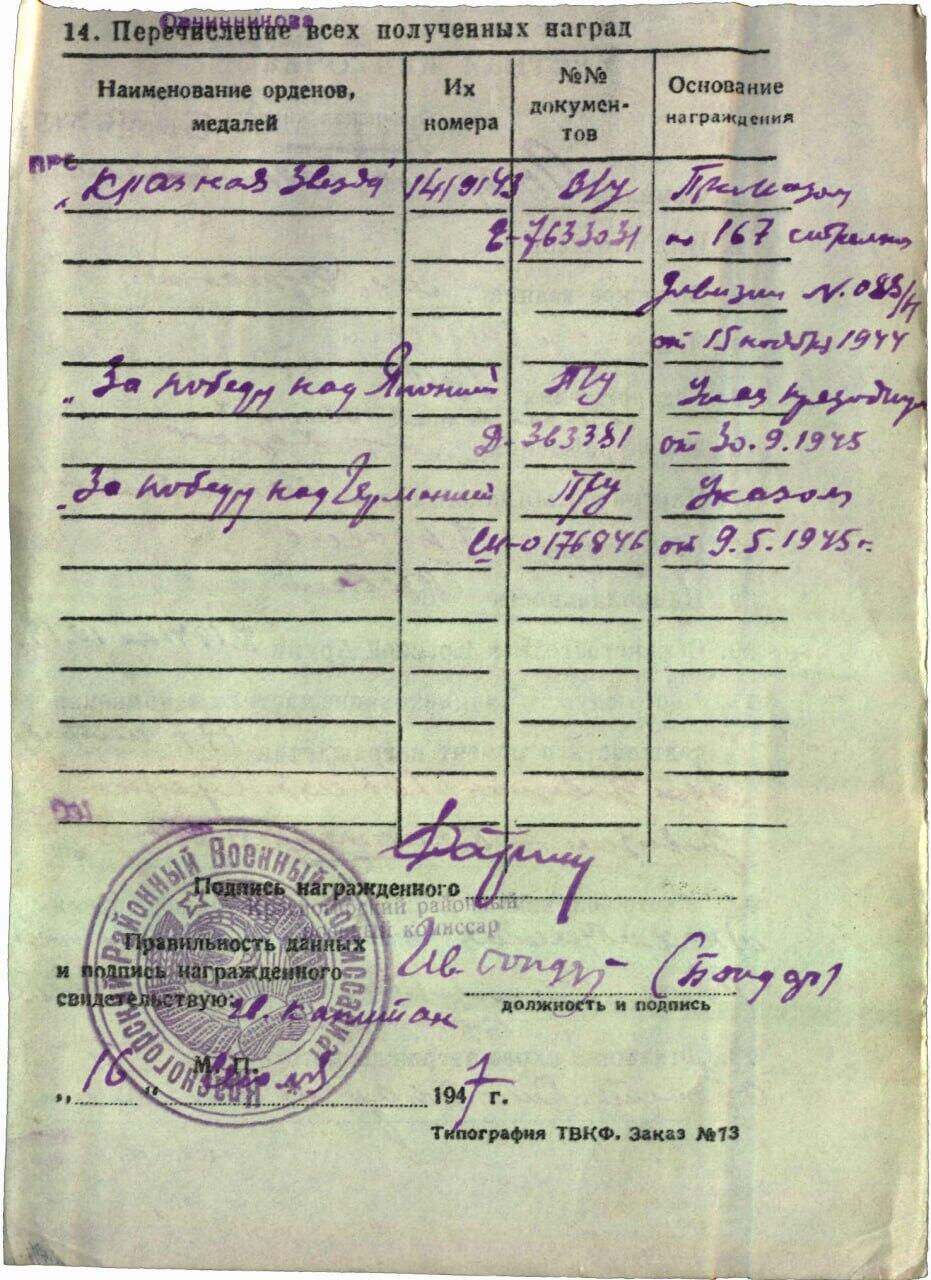 Овчинникова
14. Перечисление всех полученных наград
Наименование орденов, медалей
Их номера
№№ докумен-тов
Основание награждения
„Красная Звезда" 1419143 В/у Приказом
Е-7633031 по 167 стрелко
дивизии N.
от 15 ноября 1944
„За победу над Японией Т/у Указ президиу
Д-363381 от 30.9.1945
„За победу над Германией П/у Указом
Ш-0176846 от 9.5.1945 г.
Подпись награжденного
Красногорский районный
военный комиссар
Правильность данных
и подпись награжденного
свидетельствую: гв. капитан
гв (Бондарь)
должность и подпись
М. П.
„16" июля 1947 г.
Типография ТВКФ. Заказ №73
Красногорский Районный Военный Комиссариат